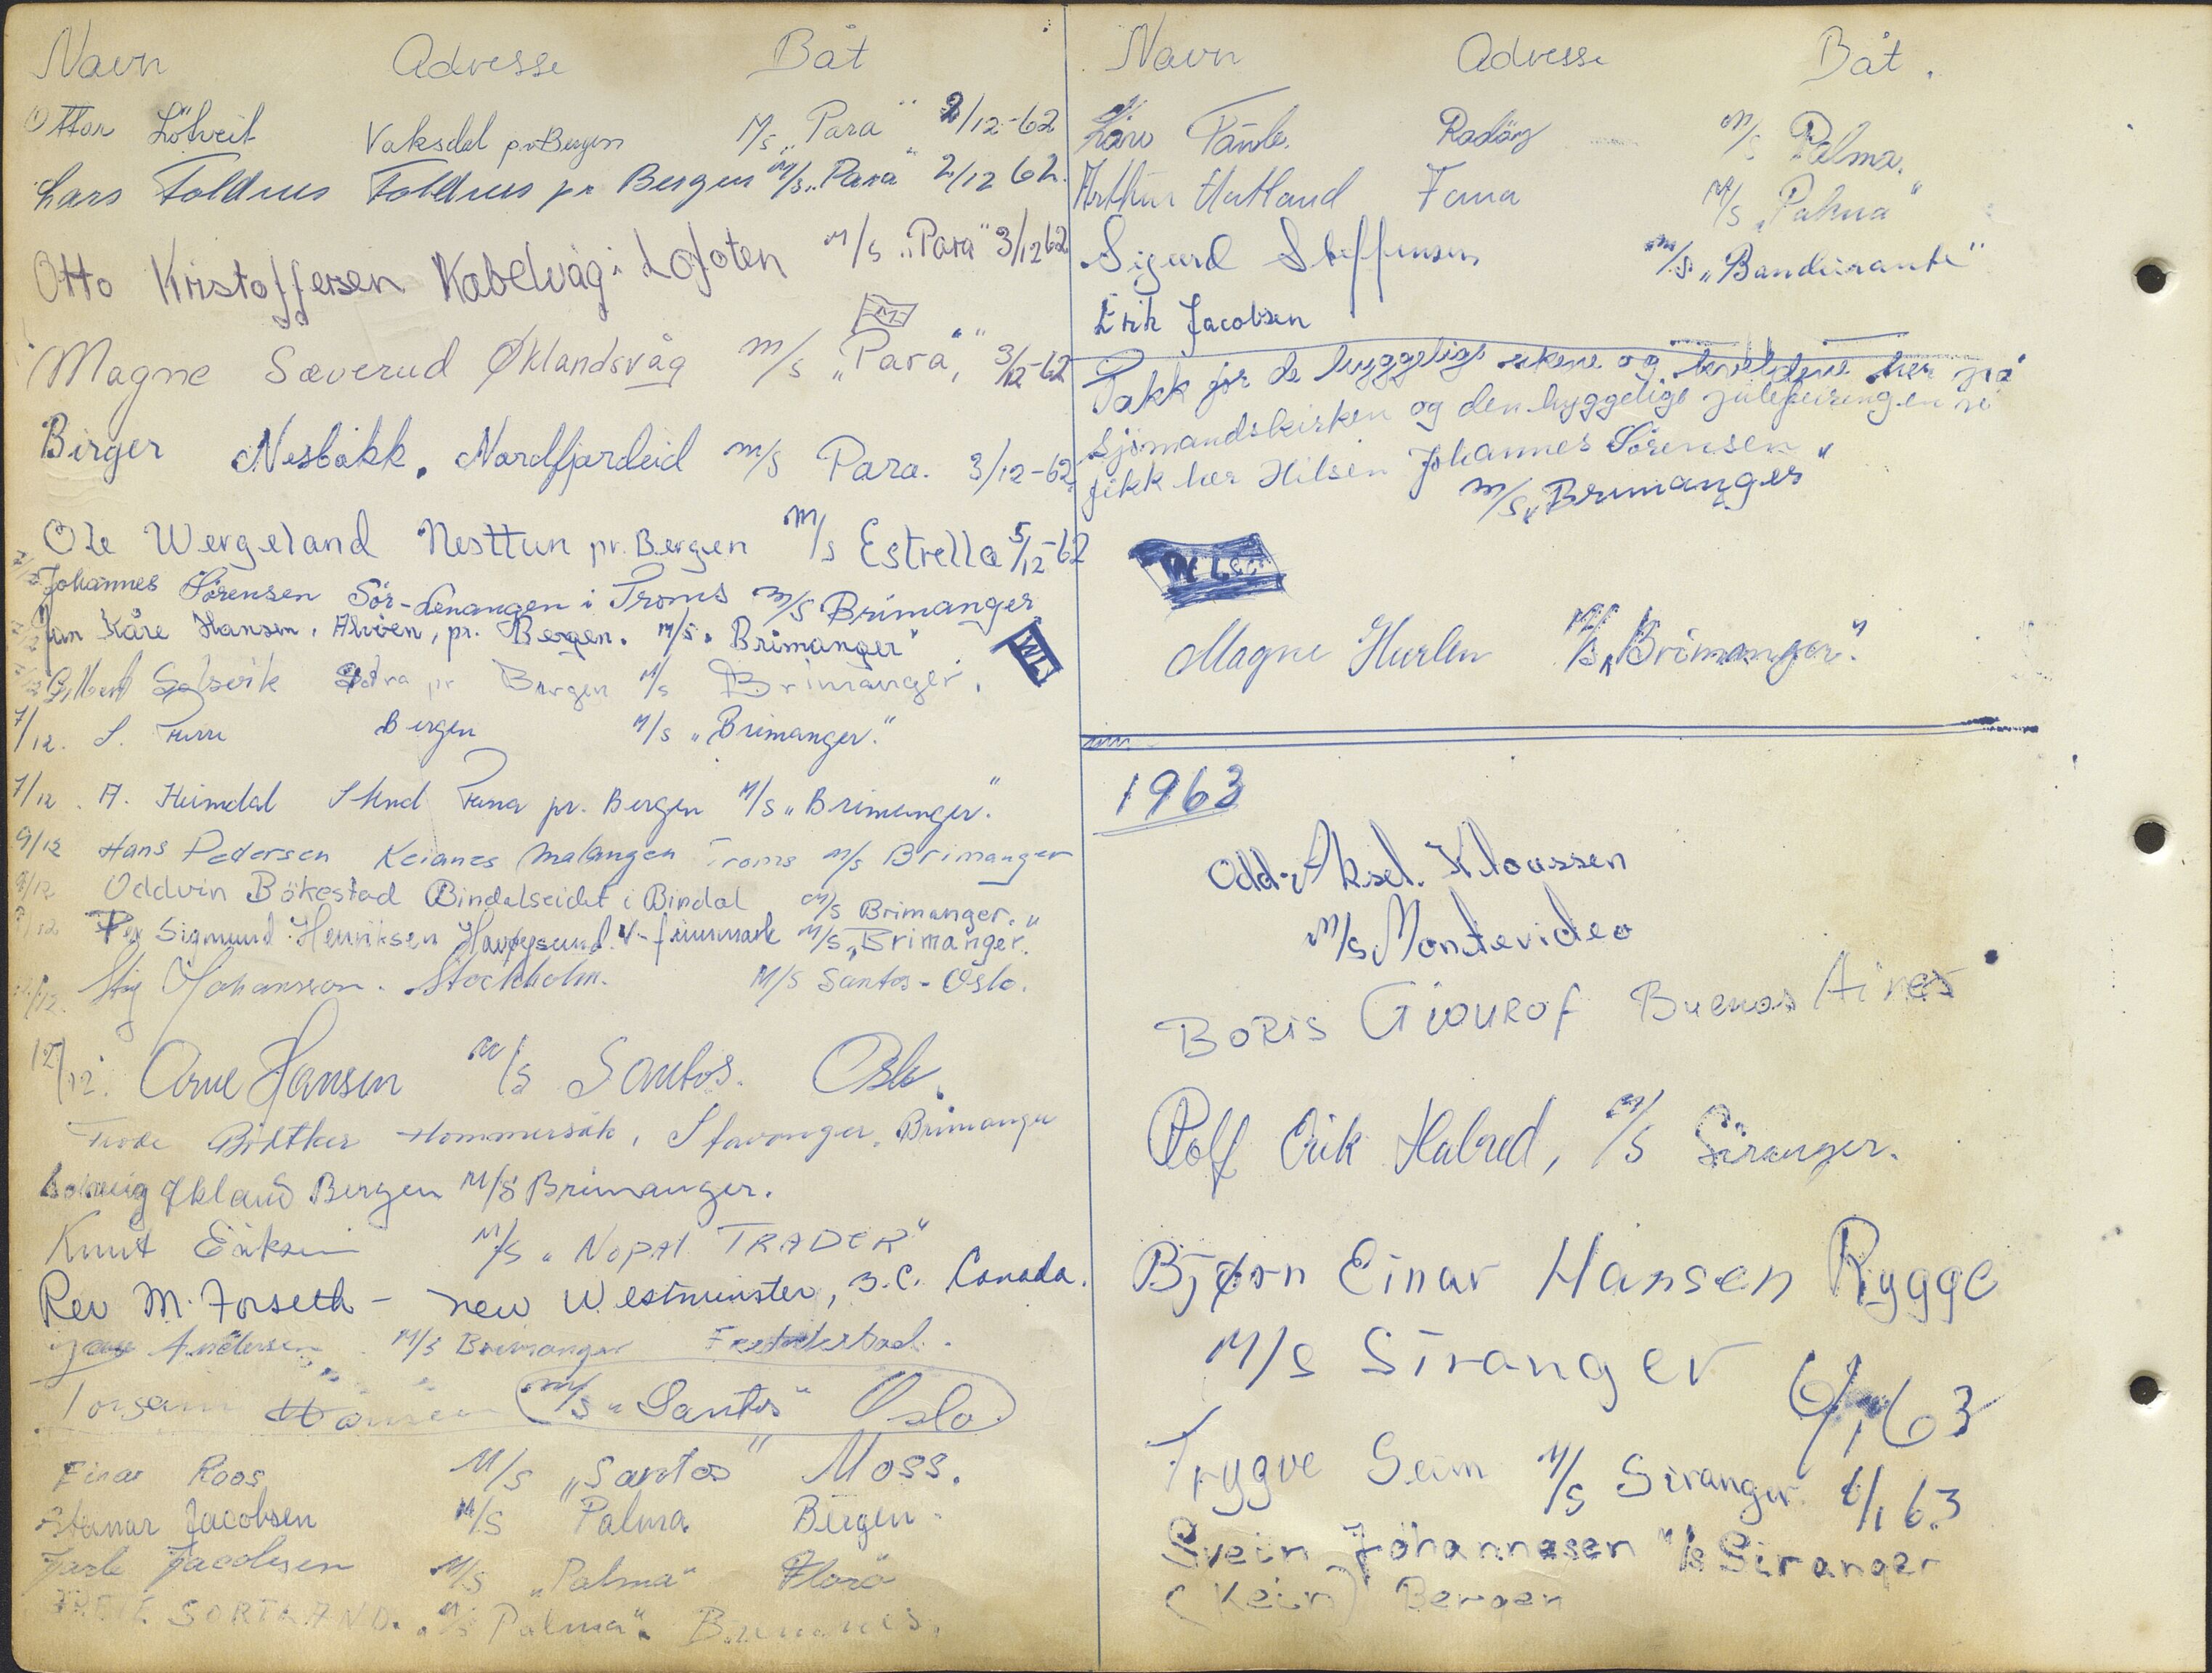 Navn Adresse Båt
Ottar Löhreit Vaksdal pr Bergen M/S "Para" 2/12-62
Lars Toldnes Toldnes pr Bergen M/S "Para" 2/12 62.
Otto Kristoffersen Kabelvåg i Lofoten M/S "Para" 3/12 62
M
Magne Sæverud Øklandsvåg M/S "Para", 3/12-62
Birger Nesbakk. Nordfjordeid M/S Para. 3/12-62
Ole Wergeland Nesttun pr. Bergen M/S Estrella 5/12-62
Johannes Sörensen Sör-Lenangen i Troms M/S Brimanger
Jan Kåre Hansen, Alvöen, pr. Bergen. M/S "Brimanger"
WL
Solsvik Sotra pr Bergen M/S Brimanger.
7/12. S. Bergen M/S "Brimanger."
7/12. A. Heimdal Fana pr. Bergen M/S "Brimanger".
9/12 Hans Pedersen Keianes Malangen Troms M/S Brimanger
9/12 Oddvin Bökestad Bindalseidet i Bindal M/S Brimanger."
9/12 Per Sigmund Henriksen Havøysund. V-finnmark M/S "Brimanger."
/12. Stig Johansson. Stockholm. M/S Santos - Oslo.
12/12. Arne Hansen M/S Santos. Oslo.
Böthker Hommersåk, Stavanger. Brimanger
Solveig Økland Bergen M/S Brimanger.
Knut Eriksen M/S "NOPAL TRADER"
Rev M. Forseth - New Westminster, B.C. Canada.
Andersen M/S Brimanger Fredrikstad.
M/S "Santos" Oslo.
Einar Roos M/S "Santos" Moss.
Steinar Jacobsen M/S Palma Bergen.
Jarle Jacobsen M/S "Palma" Florö
SORTLAND. M/S "Palma".
Navn Adresse Båt.
Radöy M/S Palma.
Arthur Hatland Fana M/S "Palma"
Sigurd Steffensen M/S. "Bandeirante"
Erik Jacobsen
Takk for de hyggelige ukene og kveldene her på
Sjömandskirken og den hyggelige julefeiringen vi
fikk her Hilsen Johannes Sörensen
M/S "Brimanger"
Magne Hurlen M/S "Brimanger".
1963
Odd-Aksel. Kloussen
M/S Montevideo
BORIS GIOUROF Buenos Aires
Rolf Erik Halvred, M/S Siranger.
Bjørn Einar Hansen Rygge
M/S Siranger 6/1 63
Trygve Seim M/S Siranger 6/1 63
Svein Johannesen M/S Siranger
(Kein) Bergen